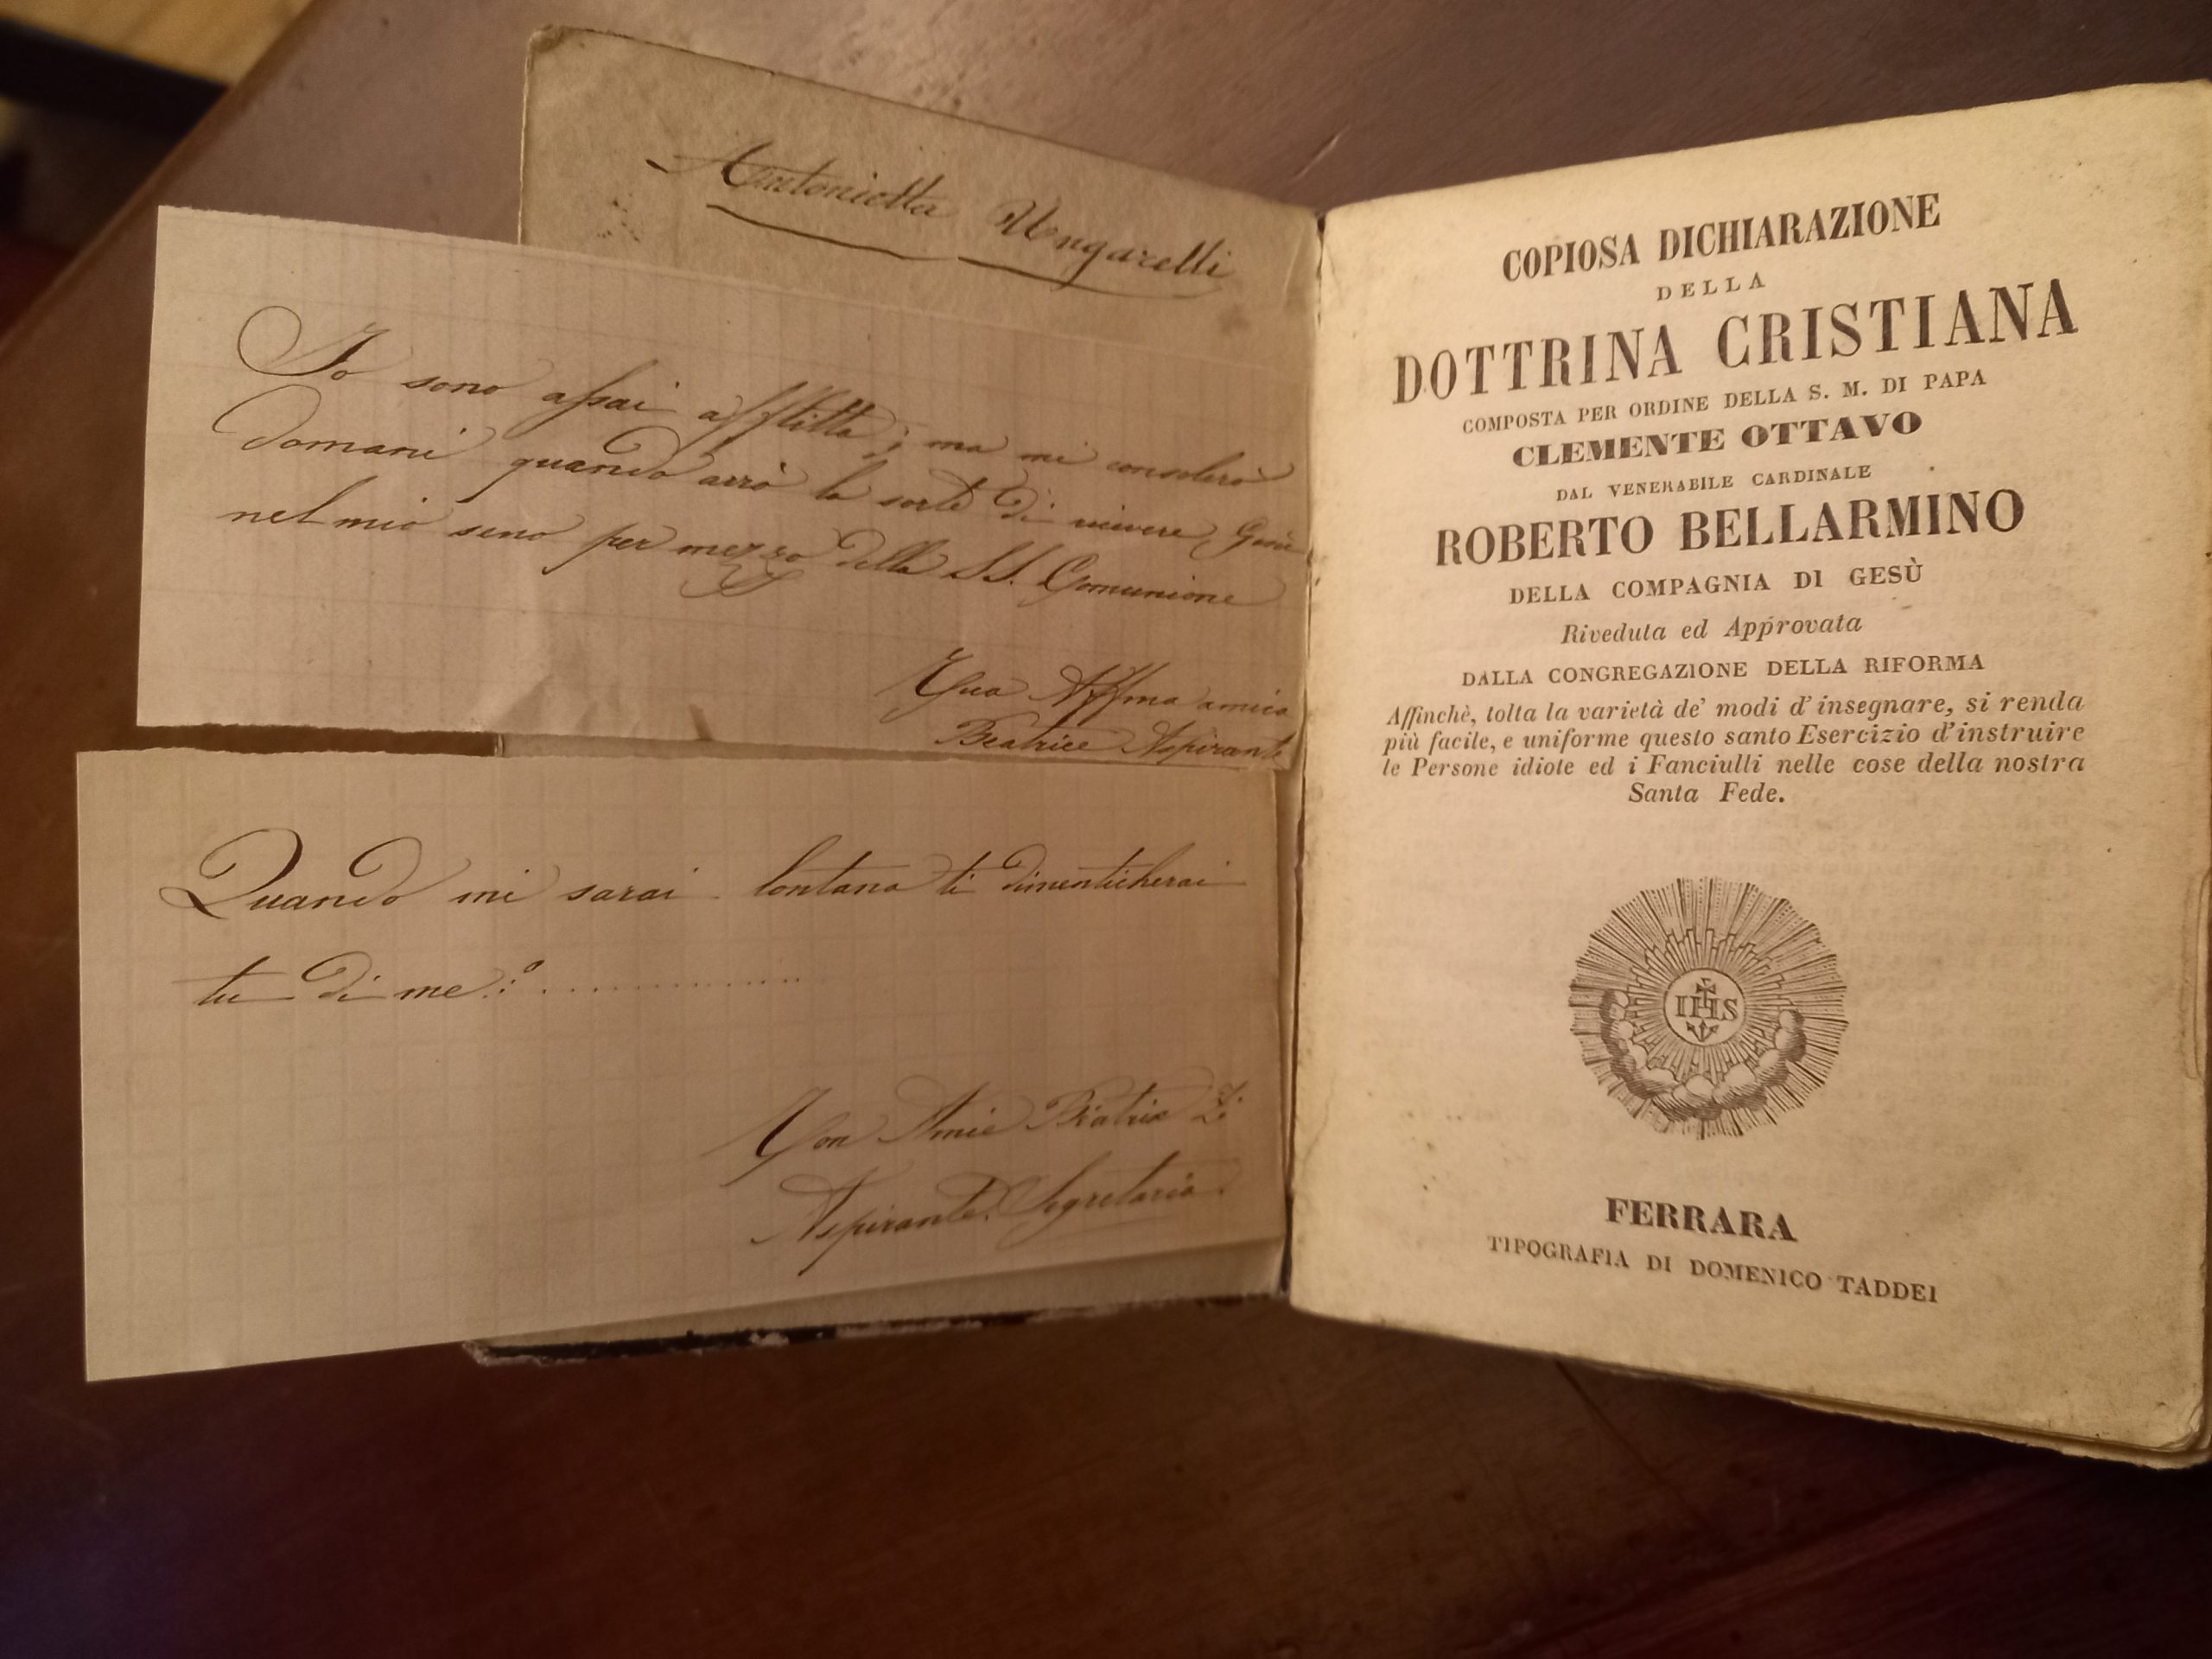 Antonietta Ungarelli
Io sono assai afflitta; ma mi consolerò
domani quando avrò la sorte di ricevere Gesù
nel mio seno per mezzo della SS. Comunione
Tua Affma amica
Beatrice Aspirante
Quando mi sarai lontana ti dimenticherai
tu di me? ..............
Ton Amie Béatrix Zi
Aspirante Segretaria
COPIOSA DICHIARAZIONE
DELLA
DOTTRINA CRISTIANA
COMPOSTA PER ORDINE DELLA S. M. DI PAPA
CLEMENTE OTTAVO
DAL VENERABILE CARDINALE
ROBERTO BELLARMINO
DELLA COMPAGNIA DI GESÙ
Riveduta ed Approvata
DALLA CONGREGAZIONE DELLA RIFORMA
Affinchè, tolta la varietà de' modi d'insegnare, si renda
più facile, e uniforme questo santo Esercizio d'instruire
le Persone idiote ed i Fanciulli nelle cose della nostra
Santa Fede.
IHS
FERRARA
TIPOGRAFIA DI DOMENICO TADDEI